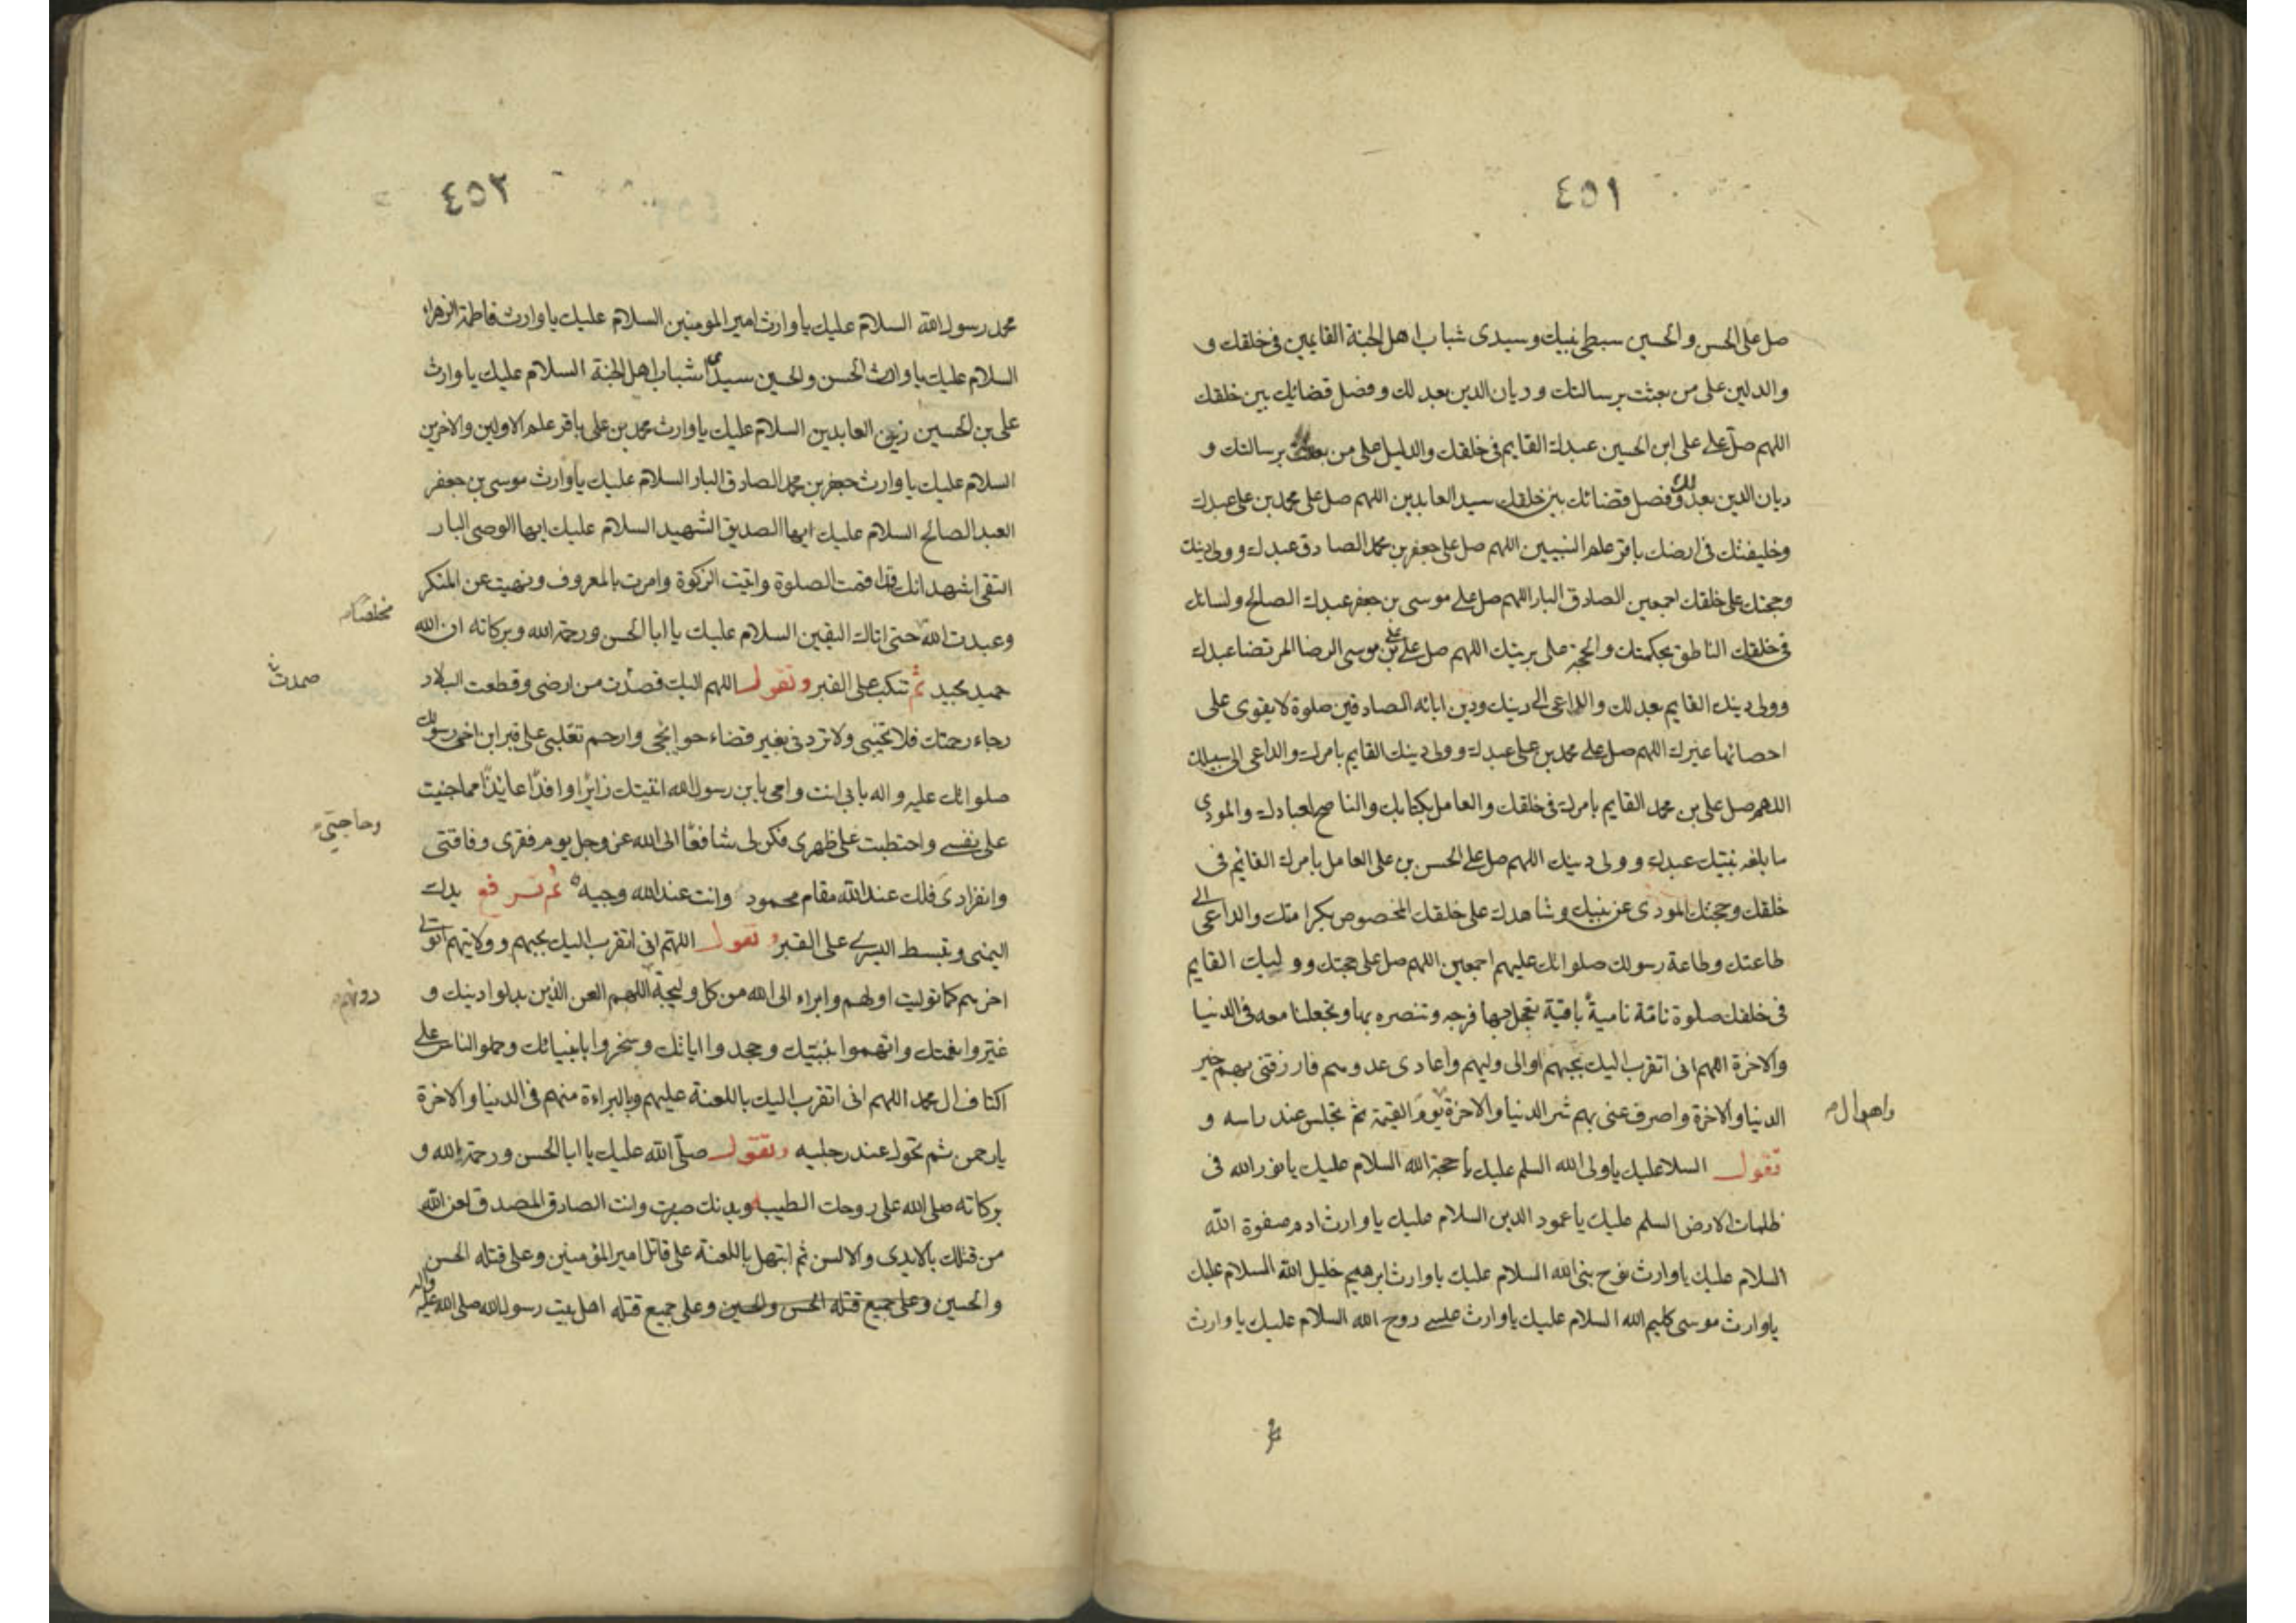 ٤٥١
صل على الحسن والحسين سبطي نبيك وسيدى شباب اهل الجنة القايمين في خلقك و
والدلين على من بعثت برسالتك وديان الدين بعدلك وفصل قضائك بين خلقك
اللهم صل على على ابن الحسين عبدك القايم في خلقك والدليل على من بعثت برسالتك و
ديان الدين بعدلك وفصل قضائك بين خلقك سيد العابدين اللهم صل على محمد بن على عبدك
وخليفتك في ارضك باقر علم النبيين اللهم صل على جعفر بن محمد الصادق عبدك وولى دينك
وحجتك على خلقك اجمعين الصادق البار اللهم صل على موسى بن جعفر عبدك الصالح ولسانك
في خلقك الناطق بحكمتك والحجة على بريتك اللهم صل على على بن موسى الرضا المرتضا عبدك
وولى دينك القايم بعدلك والداعى الى دينك ودين ابائه الصادقين صلوة لا يقوى على
احصائها غيرك اللهم صل على محمد بن على عبدك وولى دينك القايم بامرك والداعى الى سبيلك
اللهم صل على بن محمد القايم بامرك في خلقك والعامل بكتابك والناصح لعبادك والمودى
ما بلغه نبيك عبدك وولى دينك اللهم صل على الحسن بن على العامل بامرك القائم في
خلقك وحجتك المودى عن نبيك وشاهدك على خلقك المخصوص بكرامتك والداعى الى
طاعتك وطاعة رسولك صلواتك عليهم اجمعين اللهم صل على حجتك ووليك القايم
في خلقك صلوة تامة نامية باقية تعجل بها فرجه وتنصره بها وتجعلنا معه في الدنيا
والاخرة اللهم انى اتقرب اليك بحبهم اوالى وليهم واعادى عدوهم فارزقنى بهم خير
الدنيا والاخرة واصرف عنى بهم شر الدنيا والاخرة يوم القيمة ثم تجلس عند راسه و
واهوال
تقول السلا عليك ياولى الله السلم عليك يا حجة الله السلام عليك يا نور الله في
ظلمات الارض السلم عليك يا عمود الدين السلام عليك يا وارث ادم صفوة الله
السلام عليك ياوارث نوح نبى الله السلام عليك ياوارث ابرهيم خليل الله السلام عليك
ياوارث موسى كليم الله السلام عليك ياوارث عيسى روح الله السلام عليك ياوارث
٤٥٢
محمد رسول الله السلام عليك ياوارث امير المومنين السلام عليك ياوارث فاطمة الزهراء
السلام عليك ياوارث الحسن والحسين سيدى شباب اهل الجنة السلام عليك ياوارث
على بن الحسين زين العابدين السلام عليك ياوارث محمد بن على باقر علم الاولين والاخرين
السلام عليك ياوارث جعفر بن محمد الصادق البار السلام عليك ياوارث موسى بن جعفر
العبد الصالح السلام عليك ايها الصديق الشهيد السلام عليك ايها الوصى البار
التقى اشهد انك قد اقمت الصلوة واتيت الزكوة وامرت بالمعروف ونهيت عن المنكر
مخلصا
وعبدت الله حتى اتاك اليقين السلام عليك يا ابا الحسن ورحمة الله وبركاته ان الله
حميد مجيد ثم تنكب على القبر وتقول اللهم اليك قصدت من ارضى وقطعت البلاد
صمدت
رجاء رحمتك فلا تخيبنى ولا تردنى بغير قضاء حوائجى وارحم تقلبى على قبر ابن اخى رسولك
صلواتك عليه واله بابى انت وامى يابن رسول الله اتيتك زائرا وافدا عائذا مما جنيت
على نفسى واحتطبت على ظهرى فكن لى شافعا الى الله عز وجل يوم فقرى وفاقتى
وحاجتى
وانفرادى فلك عند الله مقام محمود وانت عند الله وجيه ثم ترفع يدك
اليمنى وتبسط اليسرى على القبر وتقول اللهم انى اتقرب اليك بحبهم وولايتهم اتولى
اخرهم كما توليت اولهم وابراء الى الله من كل وليجة اللهم العن الذين بدلوا دينك و
دونهم
غيروا نعمتك واتهموا نبيك وجحدوا اياتك وسخروا بانبيائك وحملو الناس على
اكتاف ال محمد اللهم انى اتقرب اليك باللعنة عليهم وبالبراءة منهم في الدنيا والاخرة
يارحمن ثم تحول عند رجليه وتقول صلى الله عليك يا ابا الحسن ورحمة الله و
بركاته صلى الله على روحك الطيبه وبدنك صبرت وانت الصادق المصدق لعن الله
من قتلك بالايدى والالسن ثم ابتهل باللعنة على قاتل امير المؤمنين وعلى قتله الحسن
والحسين وعلى جميع قتله الحسن والحسين وعلى جميع قتله اهل بيت رسول الله صلى الله عليه واله